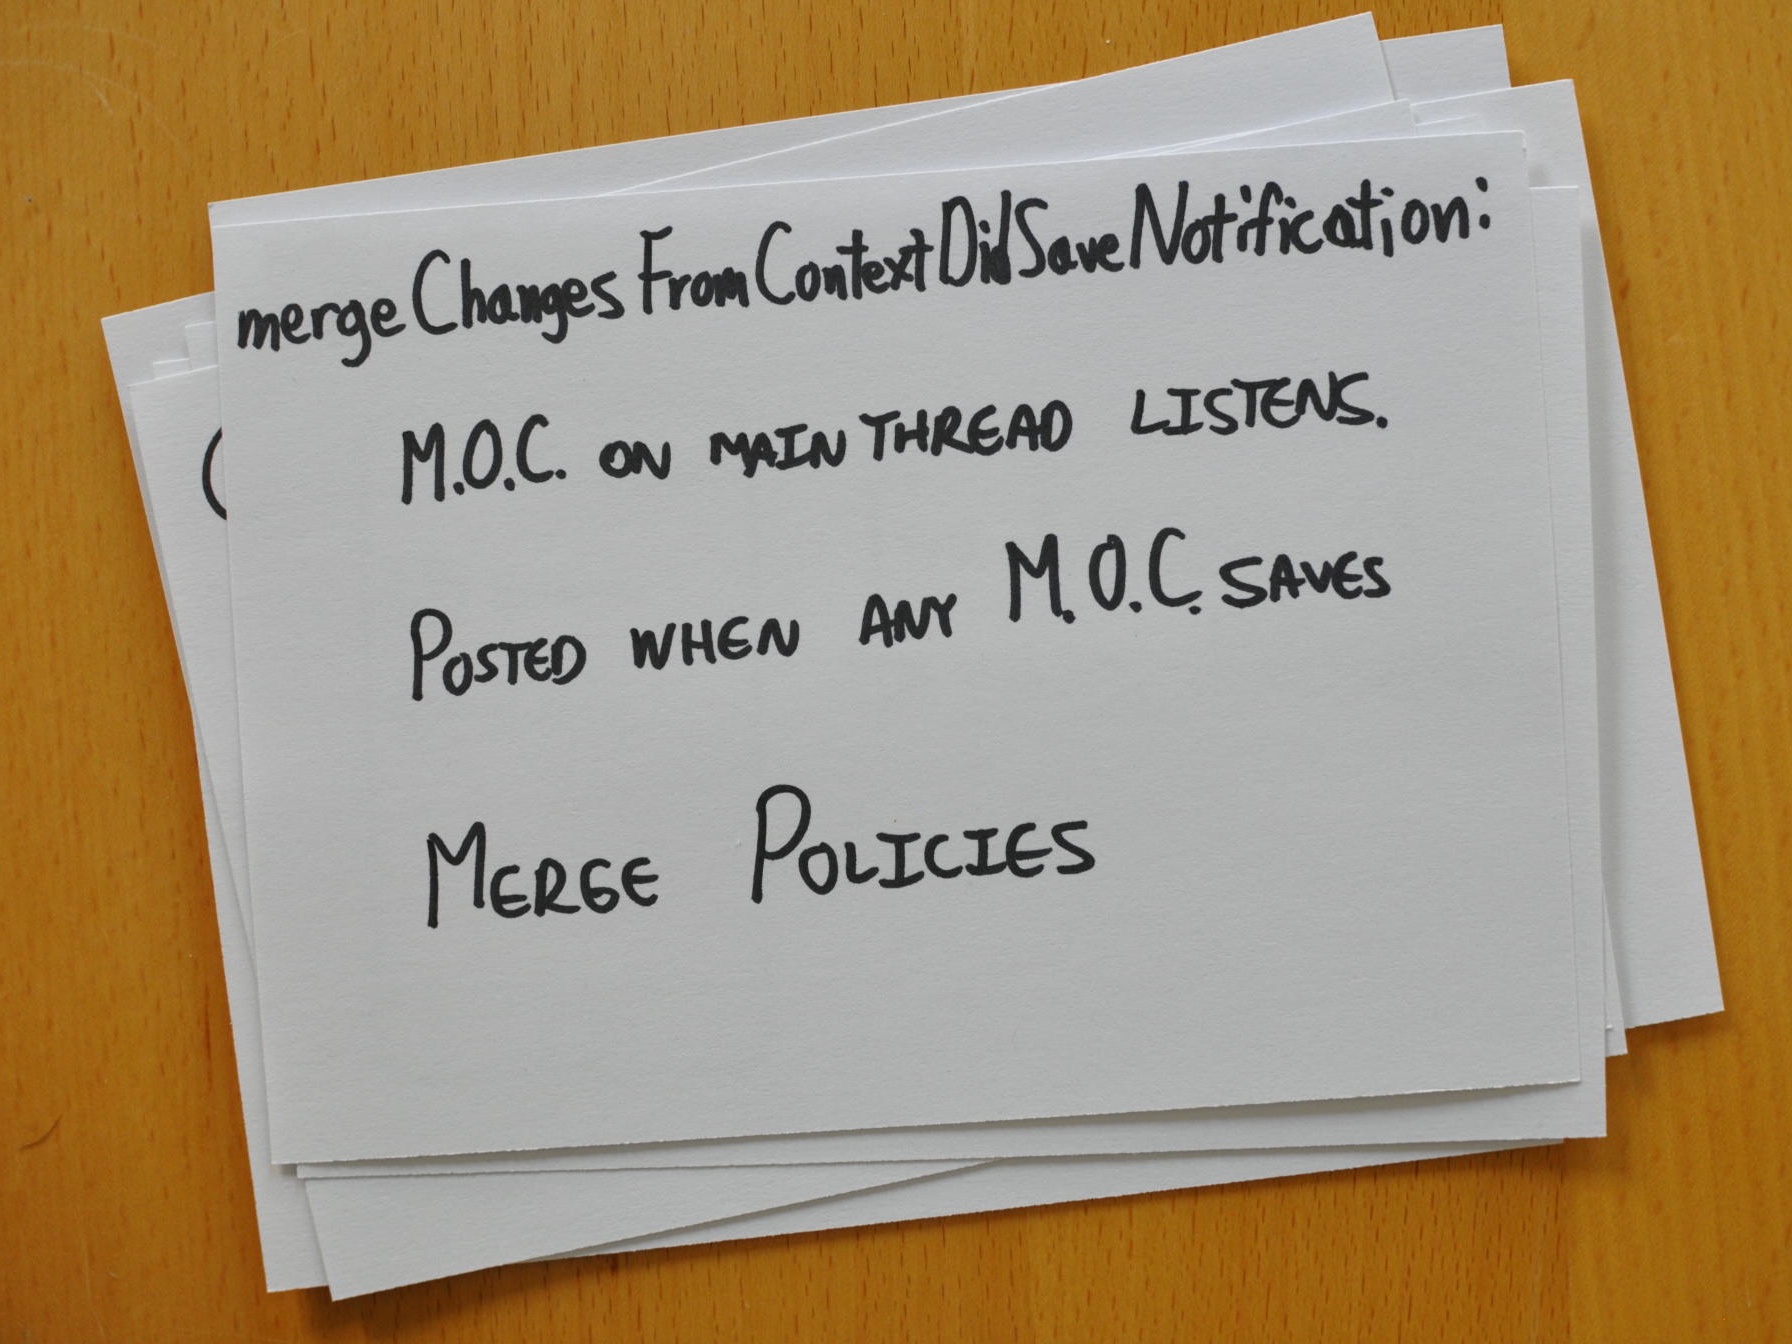 mergeChangesFromContextDidSaveNotification:
M.O.C. ON MAIN THREAD LISTENS.
POSTED WHEN ANY M.O.C. SAVES
MERGE POLICIES